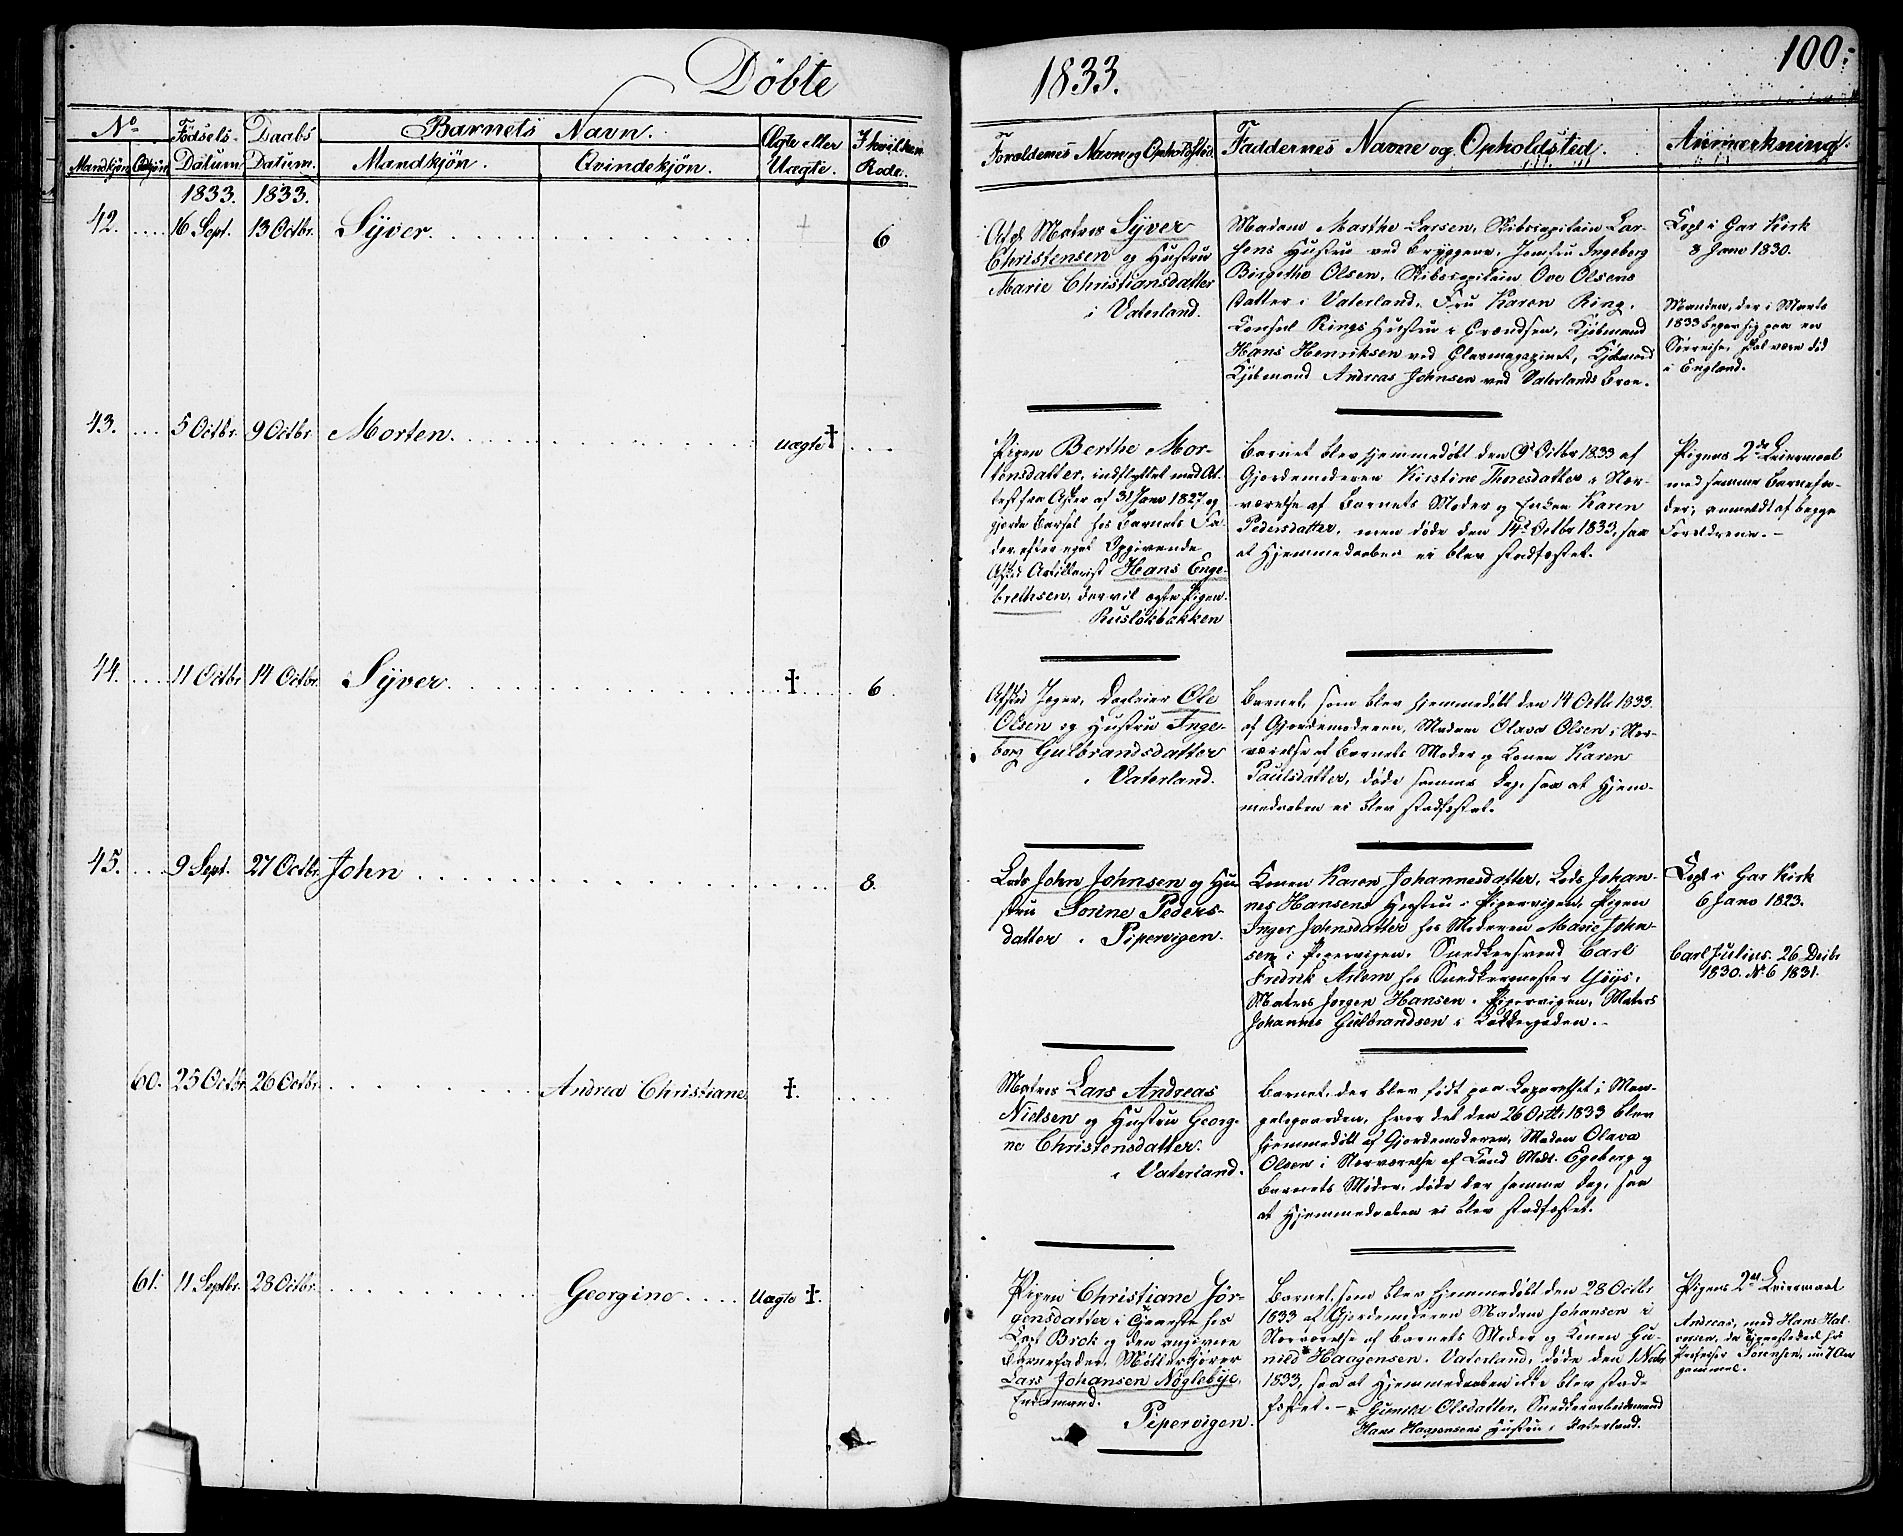 Döbte
1833.
100.
No
Födsels-
Daabs
Barnets Navn.
Ægte eller
I hvilken
Forældrenes Navn og Opholdsted.
Faddernes Navne og Opholdsted.
Anmærkning.
Mandkjön
Qvkjön
Datum
Datum.
Mandkjön.
Qvindekjön.
Uægte.
Rode.
1833. 1833.
42. 16 Sept. 13 Octbr. Syver. 6
Matros Syver
Christensen og Hustru
Marie Christiansdatter
i Vaterland.
Madam Marthe Larsen, Skibscapitain Lar-
sens Hustru ved Bryggen, Jomfru Ingeborg
Birgethe Olsen, Skibscapitain Ove Olsens
Datter i Vaterland, Fru Karen Ring,
Consul Rings Hustru i Grændsen, Kjöbmand
Hans Henriksen ved Glasmagazinet, Kjöbmand
Kjöbmand Andreas Johnsen ved Vaterlands Broe.
Copl i Gar Kirk
8 Janv 1830.
Manden, der i Marts
1833 begav sig paa en
Söereise, skal være död
i England.
43. 5 Octbr. 9 Octbr Morten. uægte †
Pigen Berthe Mor-
tensdatter, indflyttet med At-
test fra Asker af 31 Janv 1827 og
gjorde Barsel hos Barnets Fa-
der, efter eget Opgivende
Afsked Artillerist Hans Enge-
brethsen, der vil ægte Pigen.
Ruslökbakken
Barnet blev hjemmedöbt den 9de Octbr 1833 af
Gjordemoderen Kirstine Thoresdatter i Nær-
værelse af Barnets Moder og Enken Karen
Pedersdatter, men döde den 14de Octbr 1833, saa
at Hjemmedaaben ei blev stadfæstet.
Pigens 2de Leiermaal
med samme Barnefa-
der, anmeldt af begge
Forældrene.-
44. 11 Octbr 14 Octbr. Syver. † 6
Afsked Jæger, Dagleier Ole
Olsen og Hustru Inge-
borg Gulbrandsdatter
i Vaterland.
Barnet, som blev hjemmedöbt den 14 Octb 1833.
af Gjordemoderen, Madam Olava Olsen i Nær-
værelse af Barnets Moder og Konen Karen
Paulsdatter, döde samme Dag, saa at Hjem-
medaaben ei blev stadfæstet.
45. 9 Sept. 27 Octbr. John 8.
Lods John Johnsen og Hu-
stru Sorine Peders-
datter i Pipervigen.
Konen Karen Johannesdatter, Lods Johan-
nes Hansens Hustru i Pipervigen, Pigen
Inger Johnsdatter hos Moderen Marie John-
sen i Pipervigen. Snedkersvend Carl
Fredrik Ahlem hos Snedkermester
Matros Jörgen Hansen i Pipervigen, Matros
Johannes Gulbrandsen i Bakkegaden.-
Copl i Gar Kirk
6 Janv 1823.
Carl Julius. 26 Decbr
1830. No 6 1831.
60. 25 Octbr. 26 Octbr. Andrea Christiane †.
Matros Lars Andreas
Nielsen og Hustru Georgi-
ne Christensdatter.
i Vaterland.
Barnet, der blev födt paa Lazarethet i Man-
gelsgaarden, hvor det den 26 Octb 1833 blev
hjemmedöbt af Gjordemoderen, Madam Olava
Olsen i Nærværelse af Cand Med. Egeberg og
Barnets Moder, döde der samme Dag, saa
at Hjemmedaaben ei blev stadfæstet.
61. 11 Septbr. 28 Octbr. Georgine. Uægte †.
Pigen Christiane Jör-
gensdatter i Tjeneste hos
Brok og den angivne
Barnefader, Möllerkjörer
Lars Johansen Nöglebye,
Enkemand.
Pipervigen.
Barnet, som blev hjemmedöbt den 28 Octbr
1833 af Gjordemoderen Madam Johansen i
Nærværelse af Barnets Moder og Konen Gu-
nild* Haagensen, Vaterland, döde den 1 Novbr
1833, saa at Hjemmedaaben ikke blev stad-
fæstet.- * Gunild Olsdatter, Snedkerarbeidsmand
Hans Haagensens Hustru i Vaterland.
Pigens 2det Leiermaal
Andreas, med Hans Hal-
vorsen, da tjenestekarl hos
Professor Sörensen, nu 7 Aar
gammel.